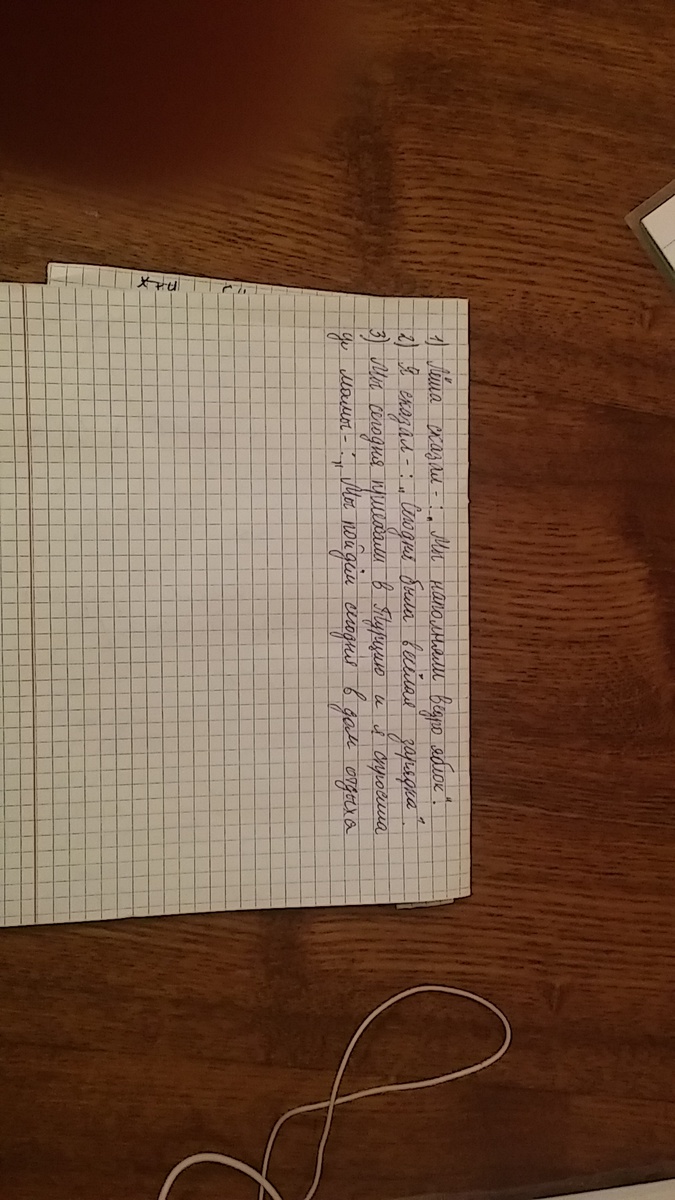 1) Лёша сказал -: „Мы наполнили ведро яблок".
2) Я сказал -: „Сегодня была весёлая зарядка".
3) Мы сегодня приехали в Турцию и я спросила
у мамы -: „Мы пойдём сегодня в дом отдыха